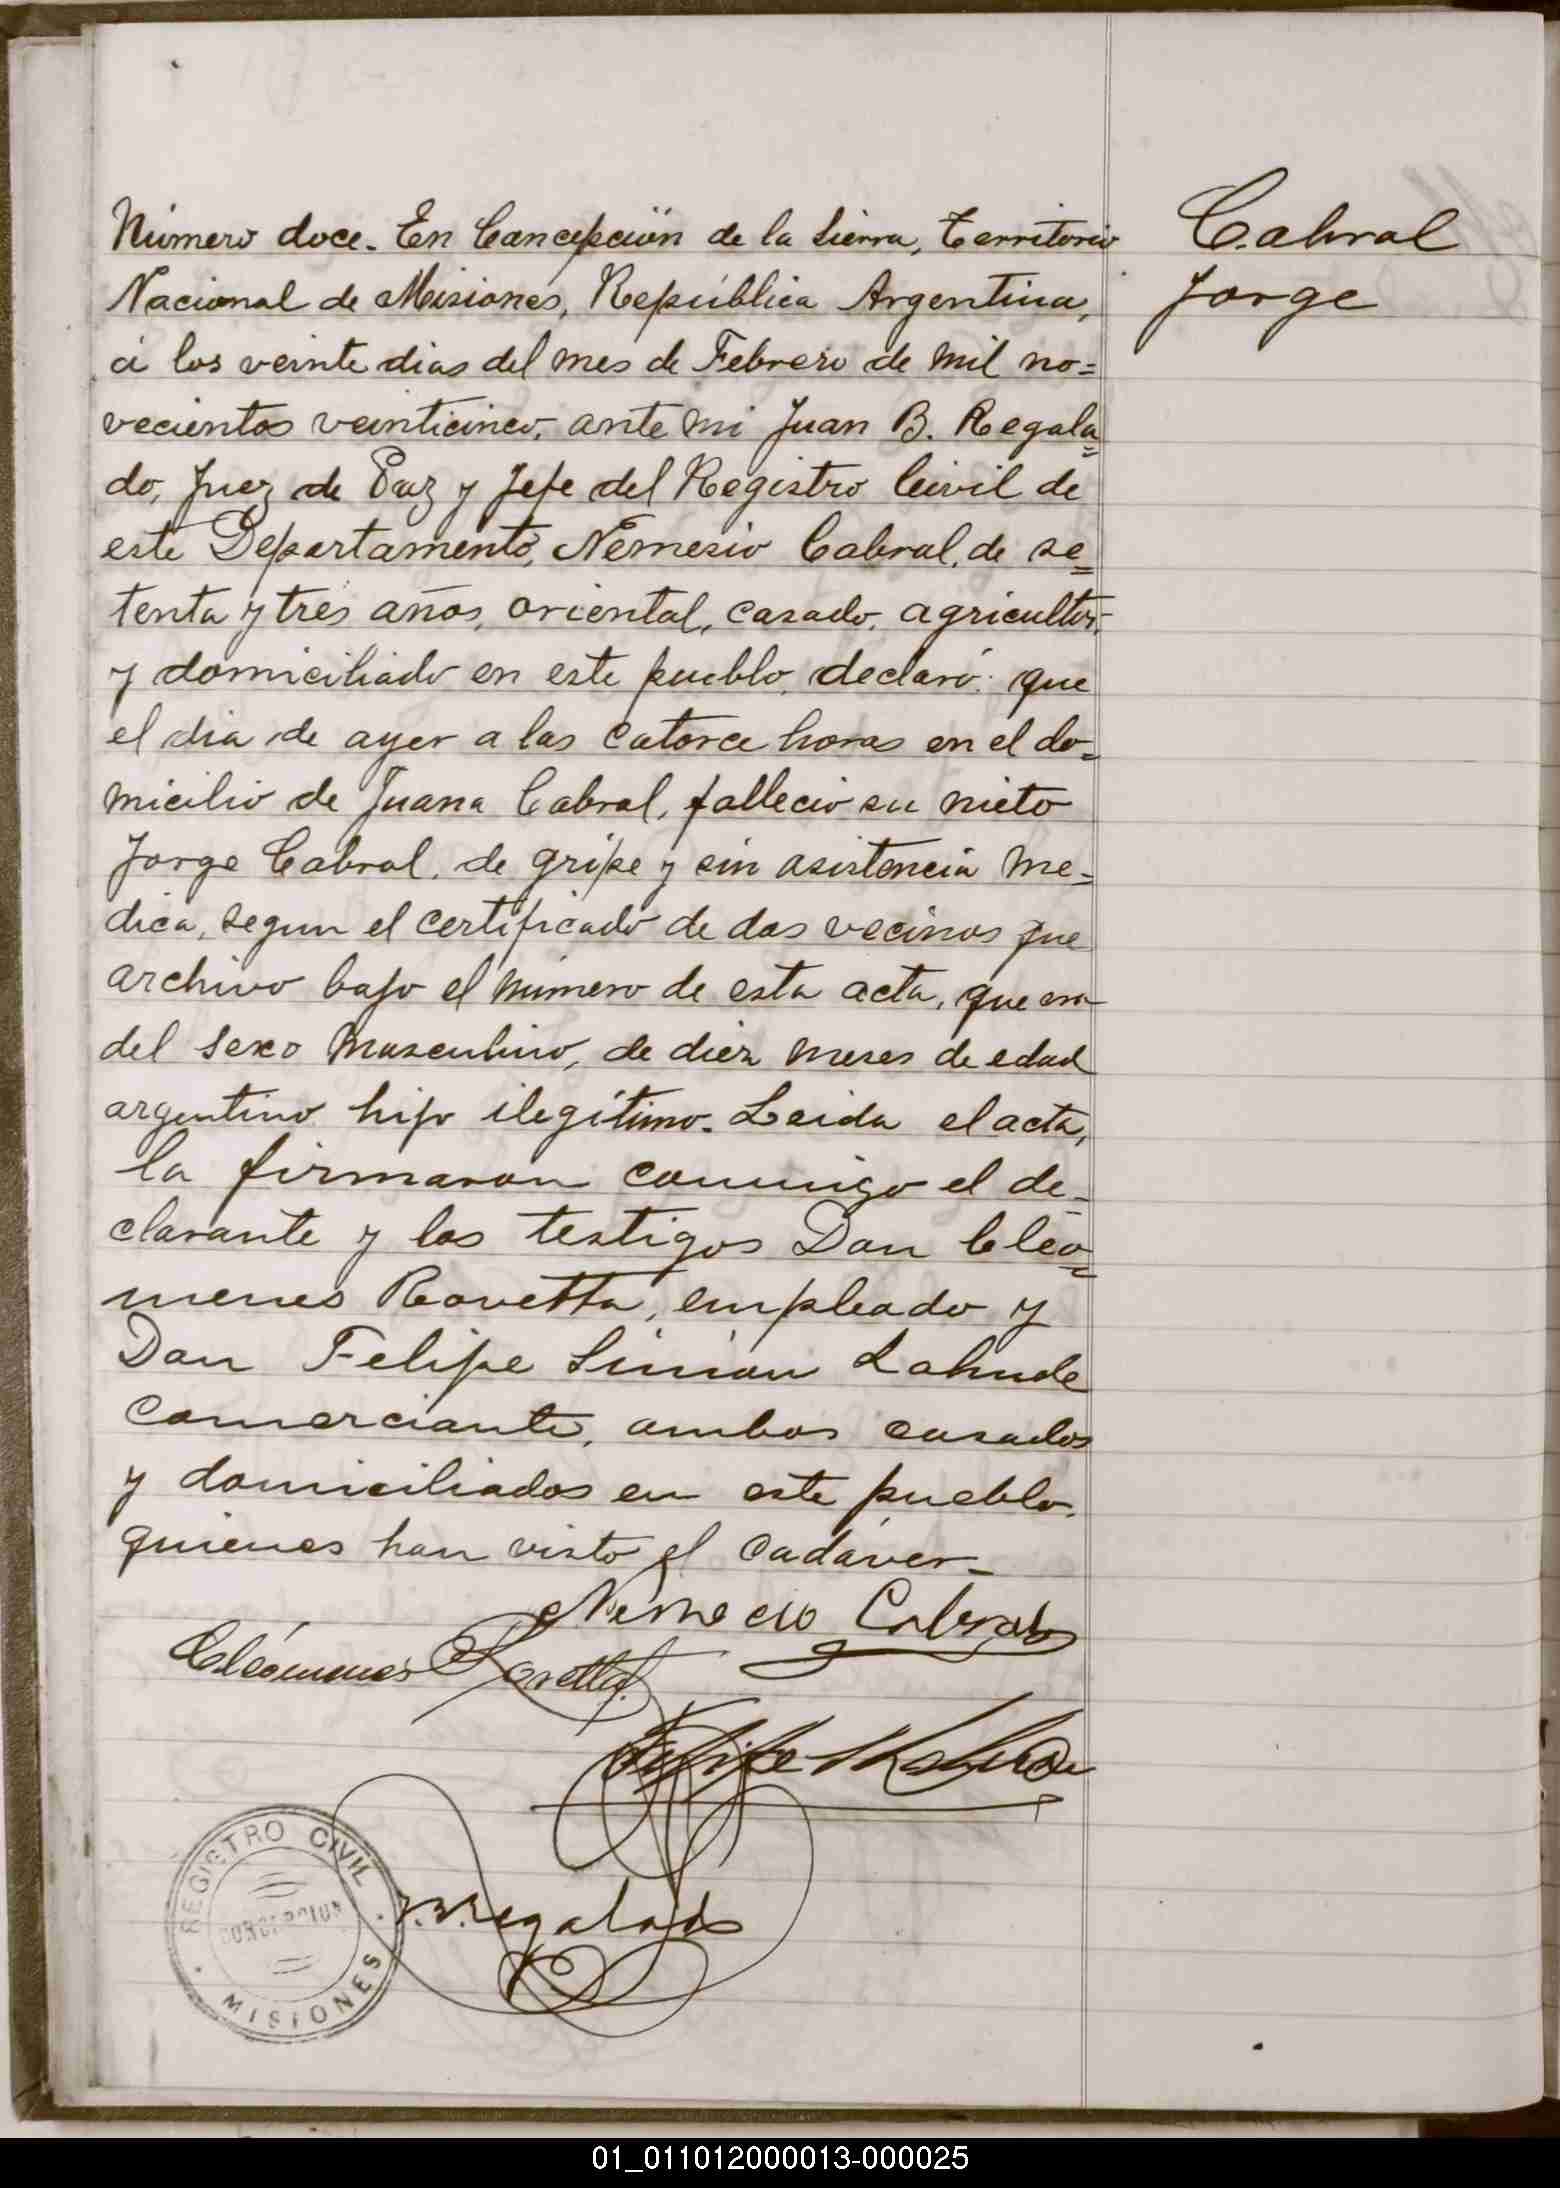 Número doce. En Concepción de la Sierra, Territorio
Nacional de Misiones, República Argentina,
á los veinte dias del mes de Febrero de mil no=
vecientos veinticinco, ante mi Juan B. Regala=
do, Juez de Paz y Jefe del Registro Civil de
este Departamento, Nemesio Cabral, de se=
tenta y tres años, oriental, casado, agricultor,
y domiciliado en este pueblo, declaró: que
el dia de ayer a las catorce horas en el do=
micilio de Juana Cabral, fallecio su nieto
Jorge Cabral, de gripe y sin asistencia me=
dica, segun el certificado de dos vecinos que
archivo bajo el número de esta acta, que era
del sexo masculino, de diez meses de edad
argentino hijo ilegítimo. Leida el acta,
la firmaron conmigo el de-
clarante y los testigos Don Cleo=
menes Rovetta, empleado y
Don Felipe Simion Lahude
comerciante, ambos casados
y domiciliados en este pueblo,
quienes han visto el cadáver.-
Nemecio Cabral
Cleómenes Rovetta
Felipe
J.B. Regalado
REGISTRO CIVIL
CONCEPCION
MISIONES
Cabral
Jorge
01_011012000013-000025